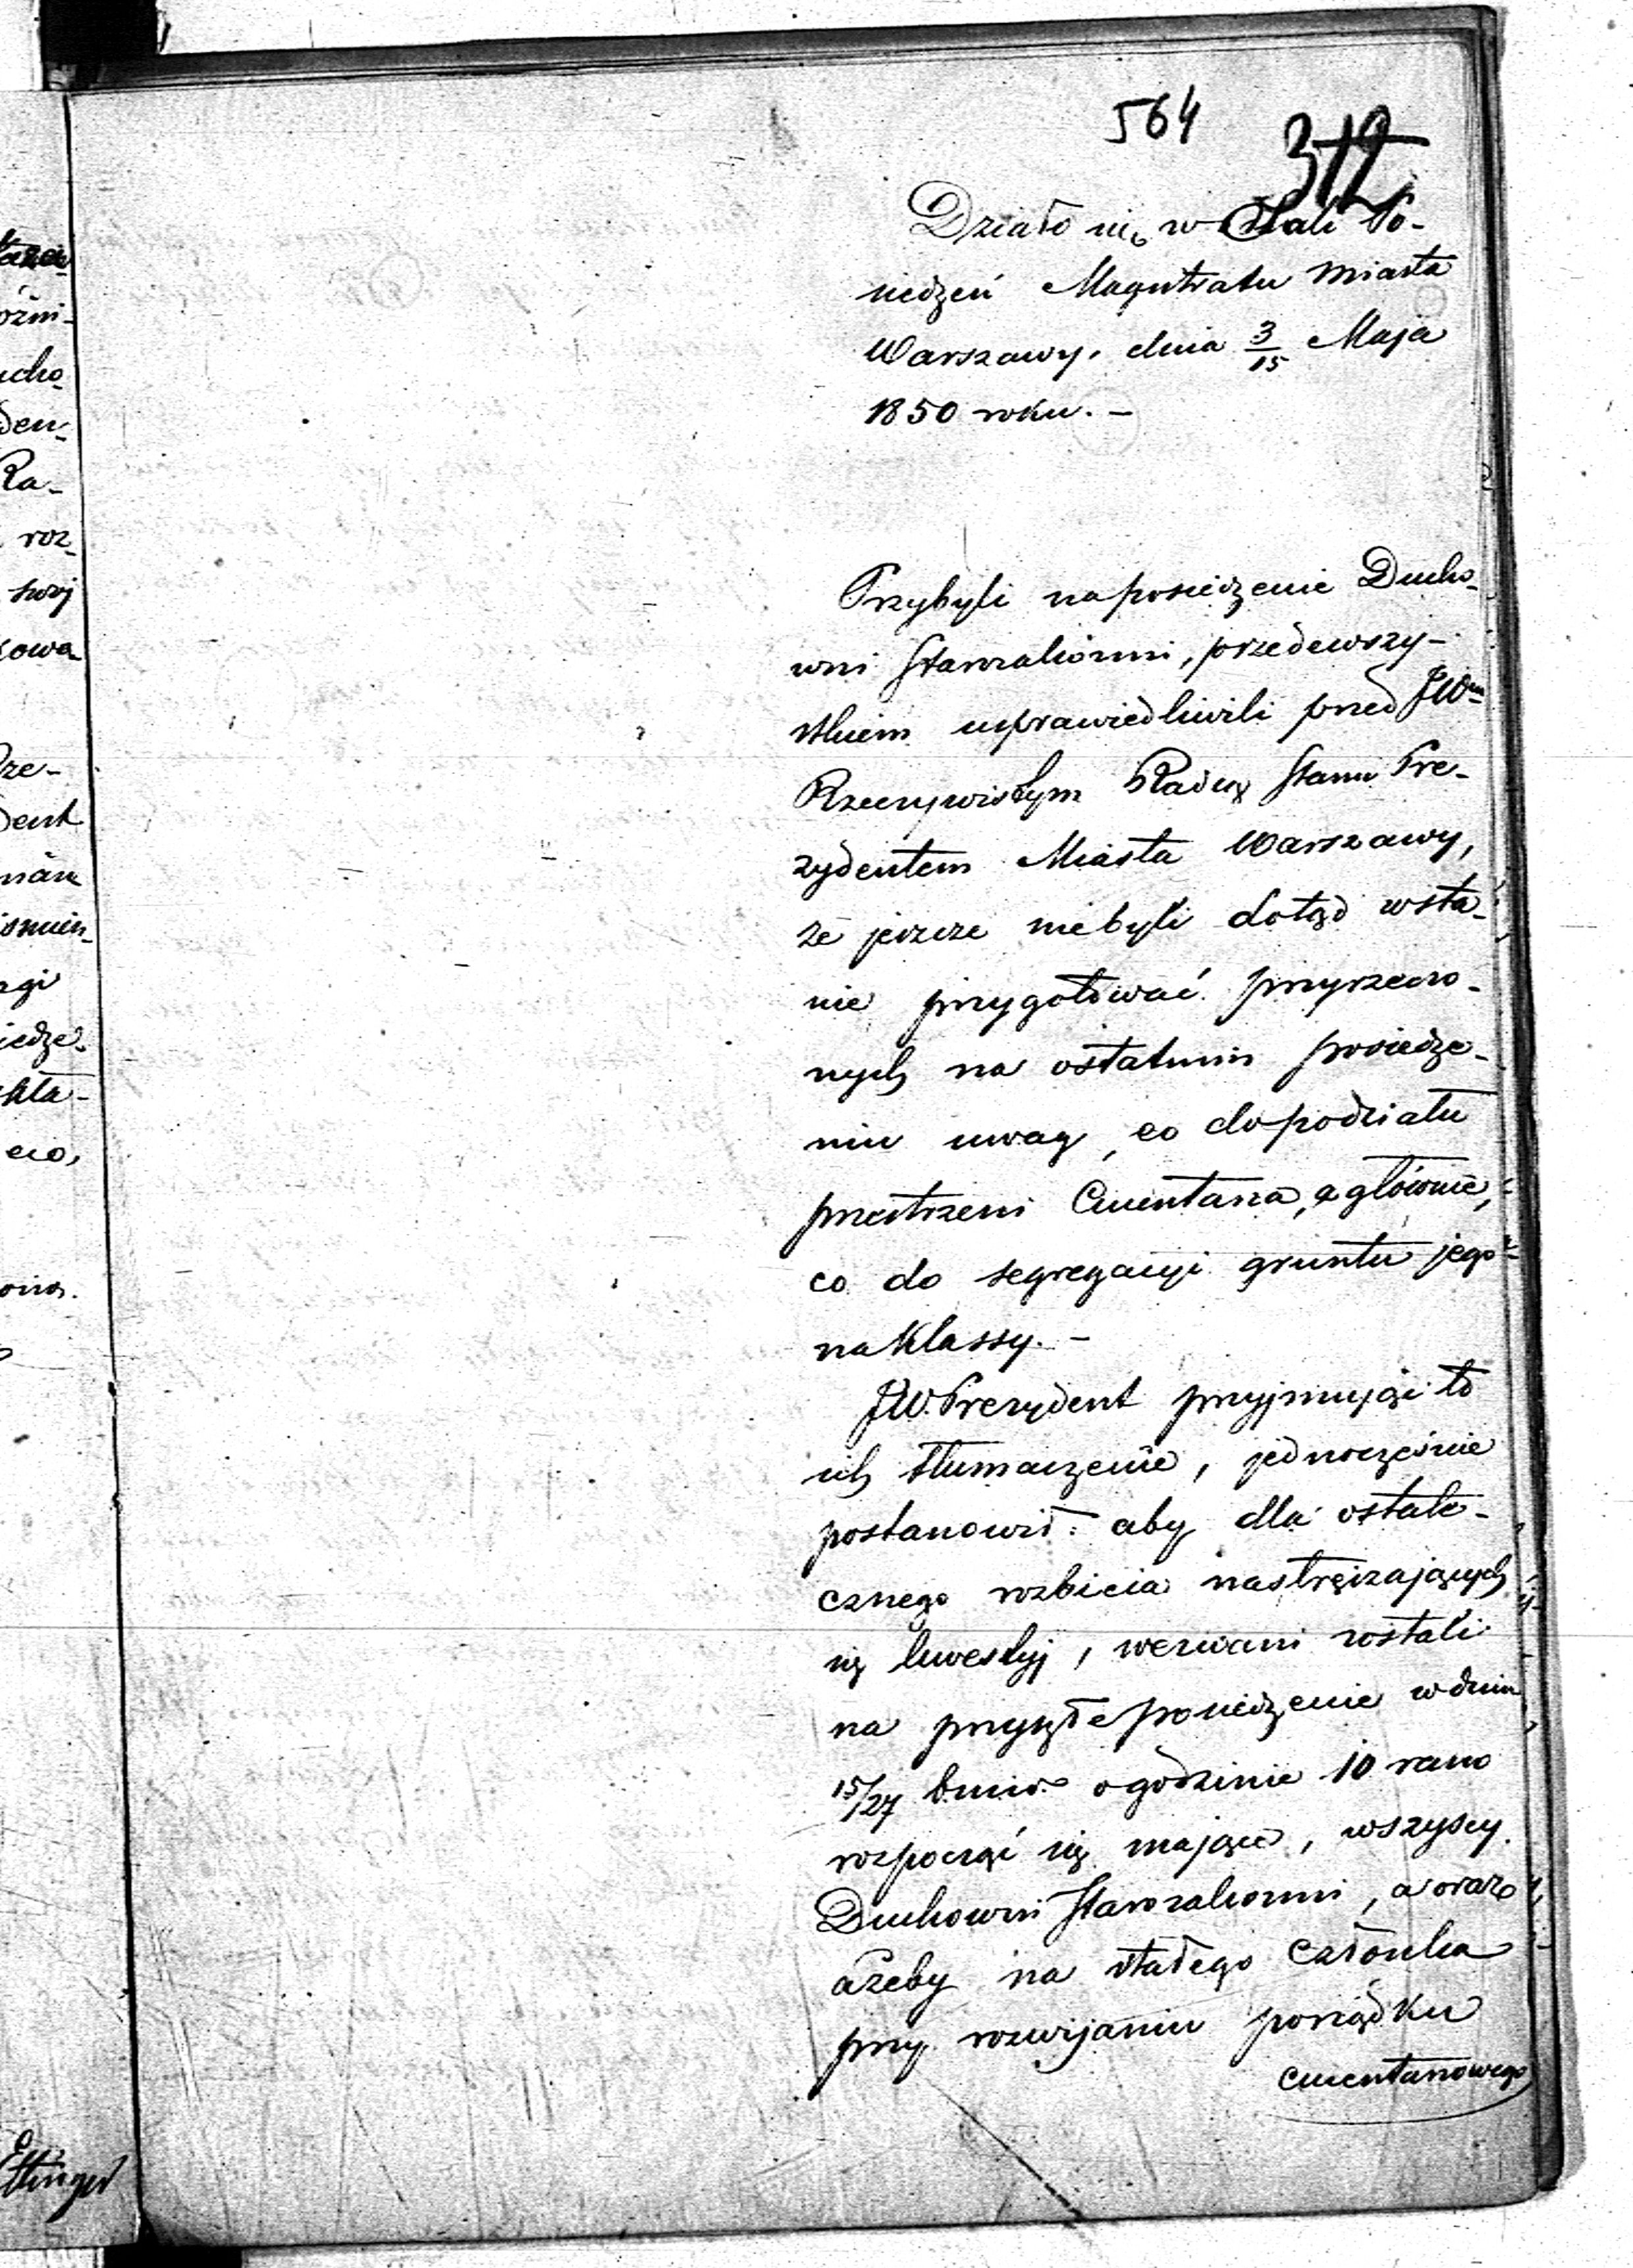 564
312
Działo się w Sali Po-
siedzeń Magistratu Miasta
Warszawy, dnia 3/15 Maja
1850 roku. -
Przybyli na posiedzenie Ducho-
wni Starozakonni, przedewszy-
stkiem usprawiedliwili przed JWm
Rzeczywistym Radcą Stanu Pre-
zydentem Miasta Warszawy,
że jeszcze nie byli dotąd w sta-
nie przygotować przyrzeczo-
nych na ostatnim posiedze-
niu uwag, co do podziału
przestrzeni Cmentarza, a głównie,
co do segregacyi gruntu jego
na Klassy. -
JW. Prezydent przyjmując to
ich tłumaczenie, jednocześnie
postanowił: aby dla ostate-
cznego rozbicia nastręczających
się kwestyj, wezwani zostali
na przyszłe posiedzenie w dniu
15/27 b. m. i r. o godzinie 10 rano
rozpocząć się mające, wszyscy
Duchowni Starozakonni, a oraz
ażeby na stałego Członka
przy rozwijaniu porządku
cmentarzowego
Ra-
roz-
swej
kowa-
dent
Ettinger